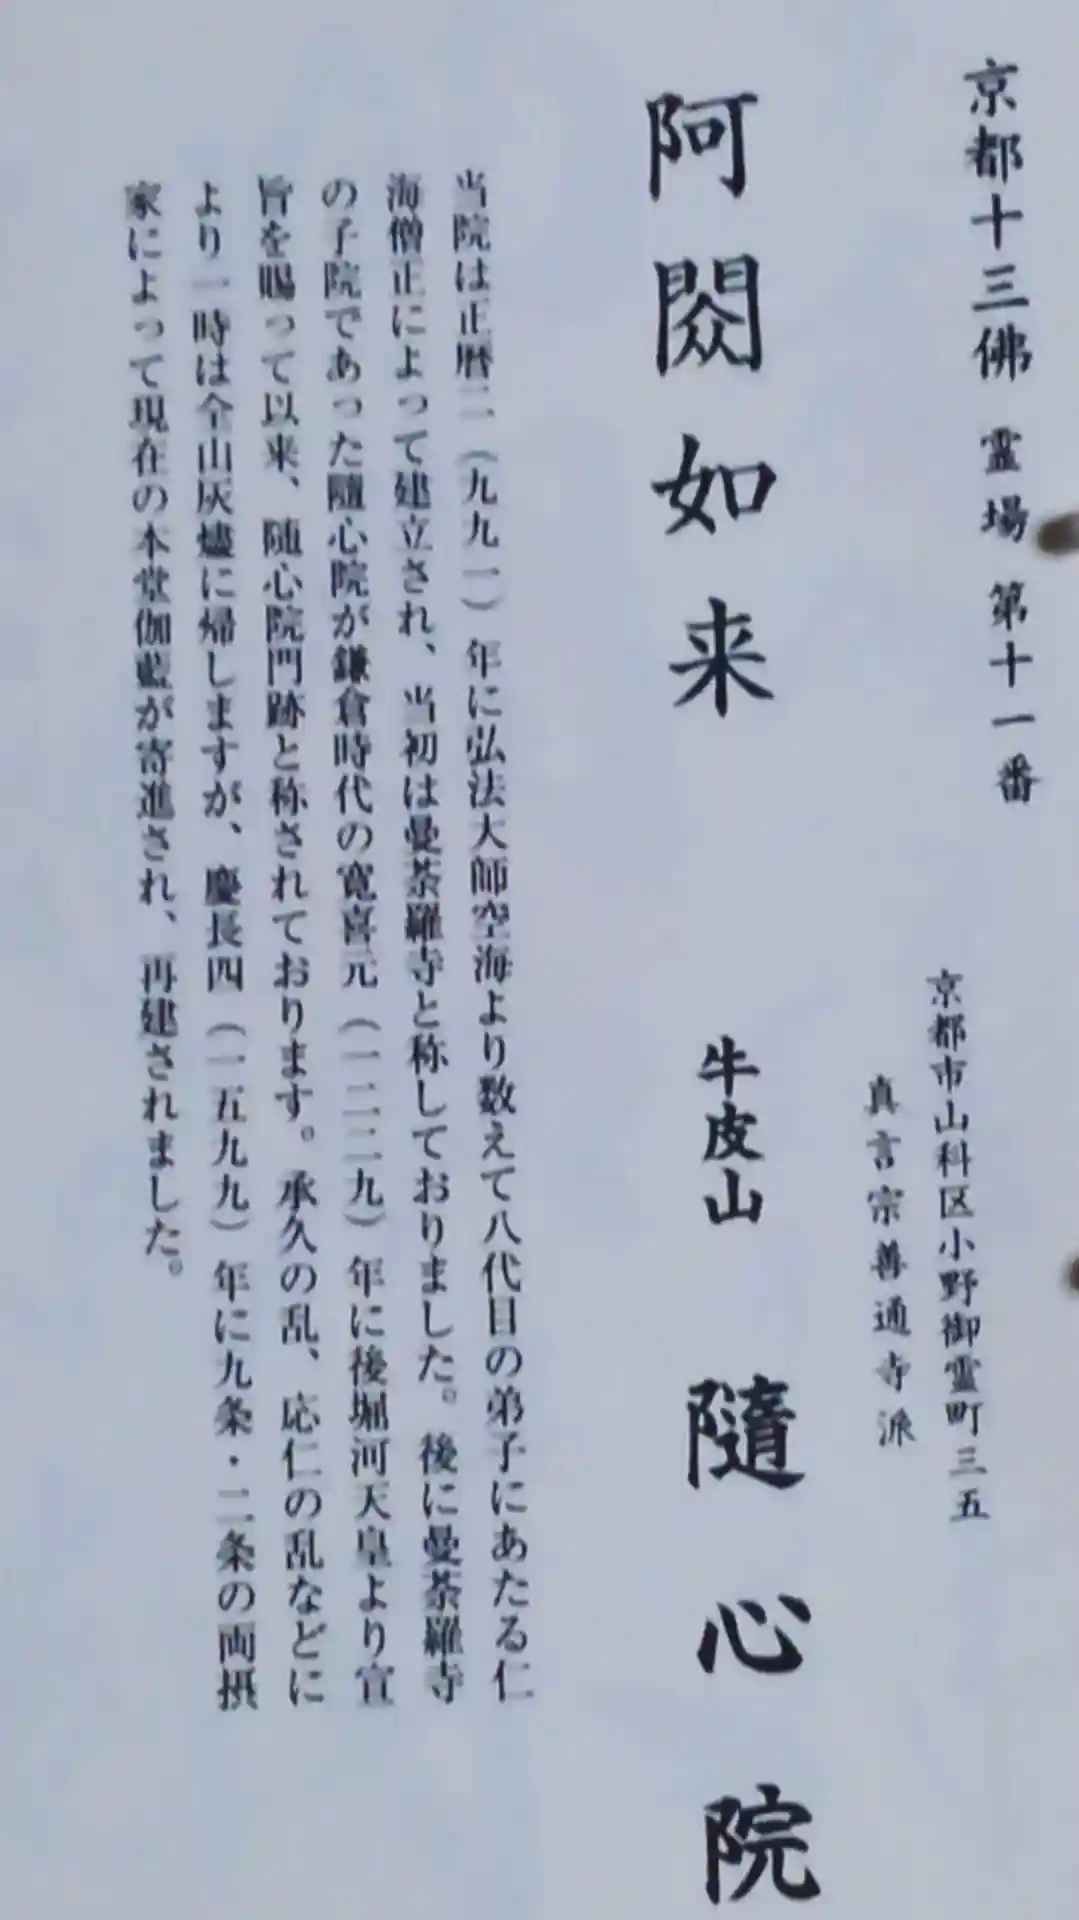 京都十三佛 霊場 第十一番
京都市山科区小野御霊町三五
真言宗善通寺派
阿閦如来 牛皮山 隨心院
当院は正暦二(九九一)年に弘法大師空海より数えて八代目の弟子にあたる仁
海僧正によって建立され、当初は曼荼羅寺と称しておりました。後に曼荼羅寺
の子院であった隨心院が鎌倉時代の寛喜元(一二二九)年に後堀河天皇より宣
旨を賜って以来、随心院門跡と称されております。承久の乱、応仁の乱などに
より一時は全山灰燼に帰しますが、慶長四(一五九九)年に九条・二条の両摂
家によって現在の本堂伽藍が寄進され、再建されました。